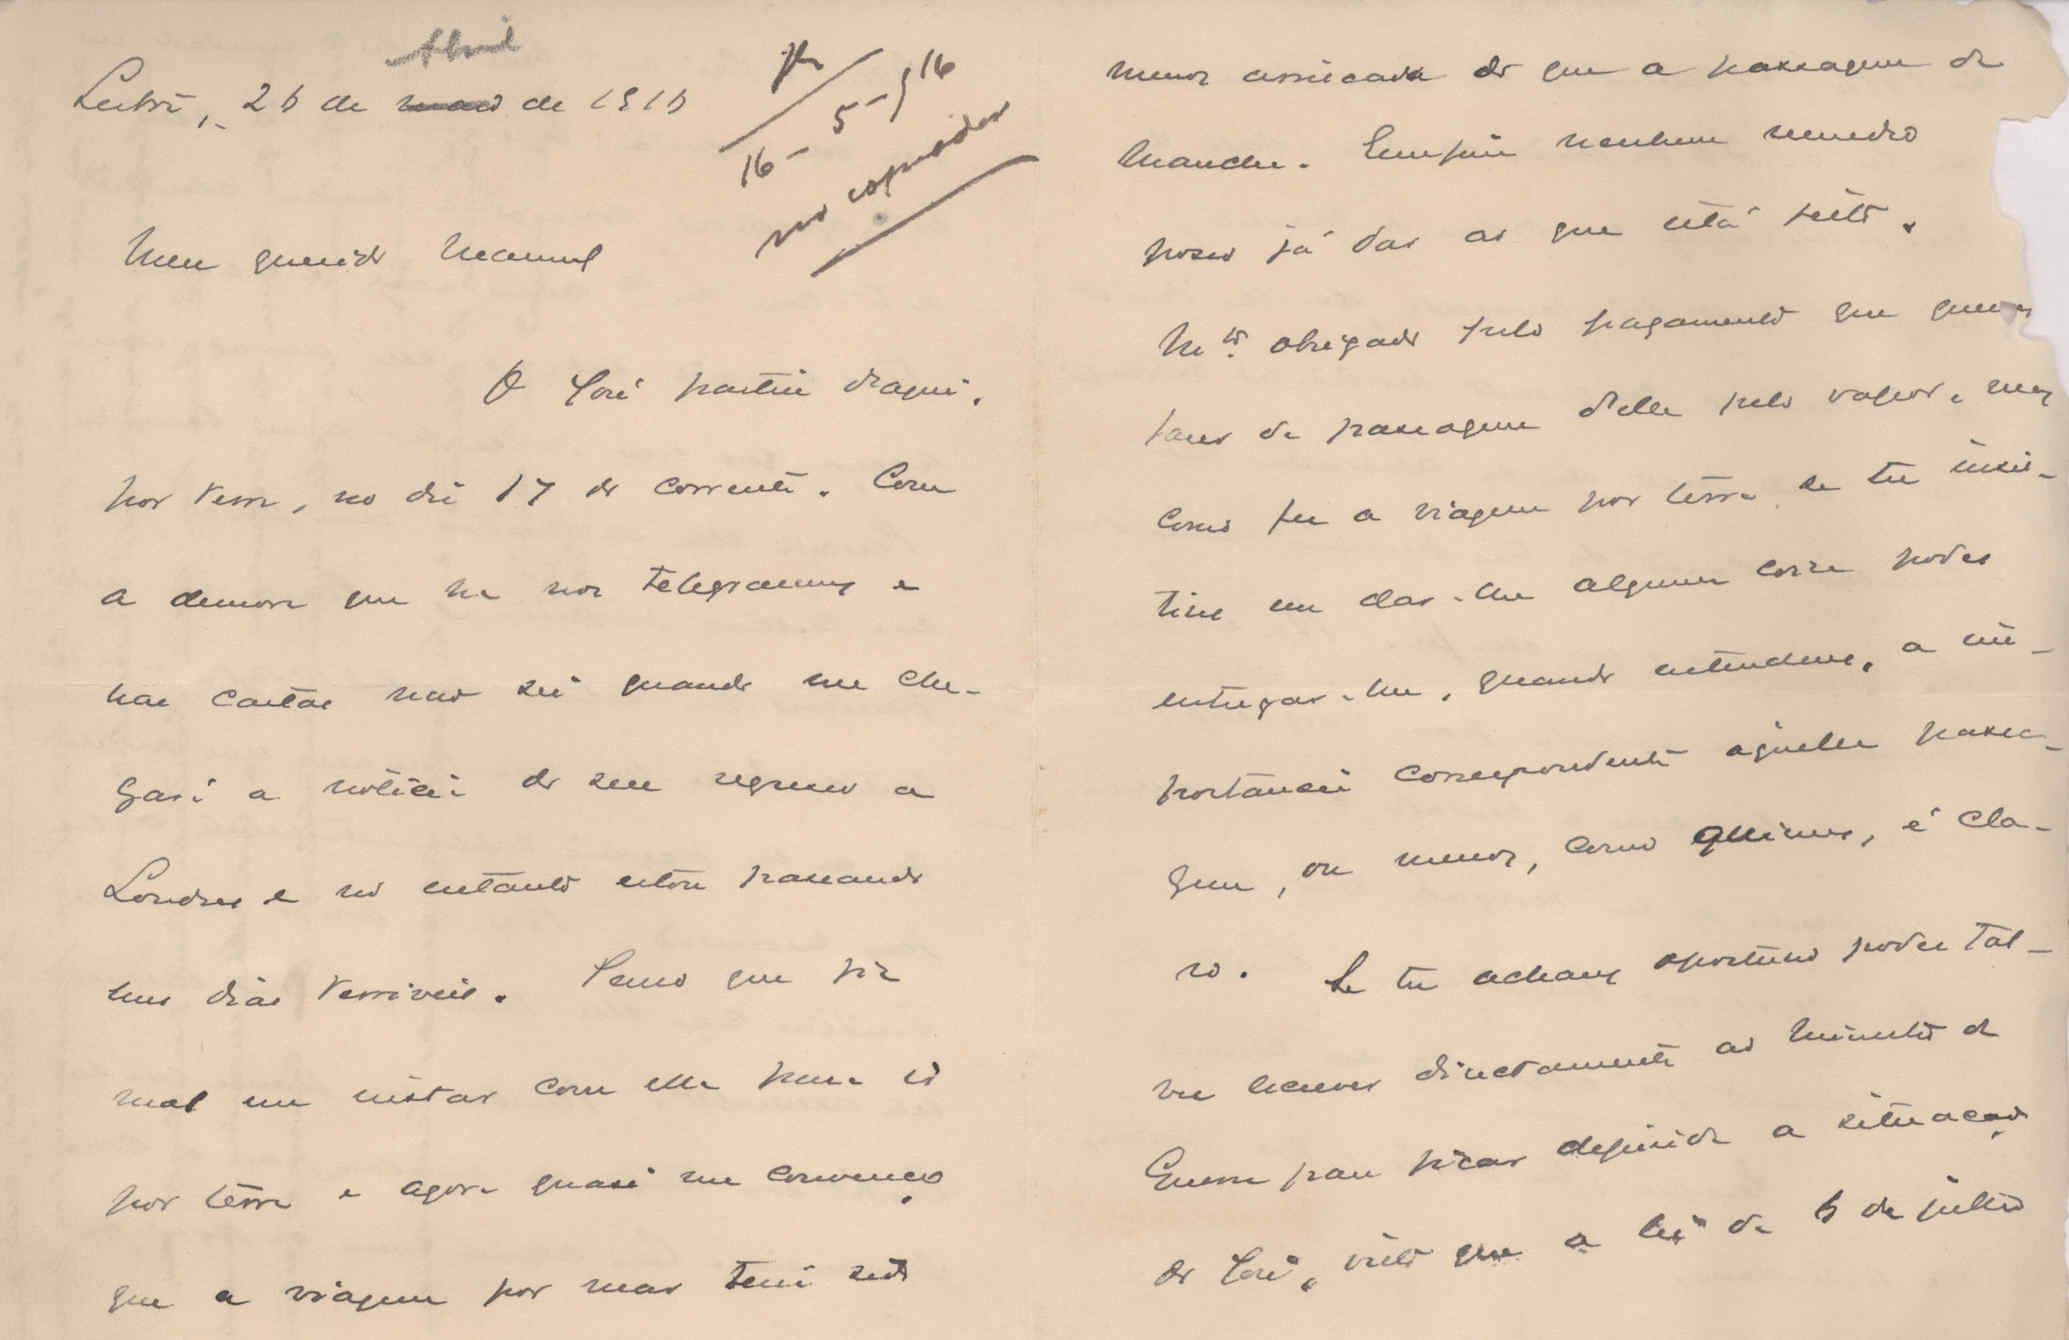 Abril
26 de maio de 1916
R
16-5-916
no copiador
Meu querido Manuel
O José partiu daqui,
por terra, no dia 17 do corrente. Com
a demora que ha nos telegramas e
nas cartas nao sei quando me che-
gará a noticia do seu regresso a
Londres e no entanto estou passando
uns dias terriveis. Temo que fiz
mal em instar com elle para ir
por terra e agora quasi me convenço
que a viagem por mar teria sido
menos arriscada do que a passagem da
Mancha. Emfim nenhum remedio
posso já dar ao que está feito.
Mto. obrigado pelo pagamento que queres
fazer da passagem d'elle pelo vapor, mas
como fez a viagem por terra se tu insis-
tires em dar-lhe alguma coisa podes
entregar-lhe, quando entenderes, a im-
portancia correspondente áquella passa-
gem, ou menos, como quizeres, é cla-
ro. Se tu achares oportuno poder tal-
vez escrever directamente ao Ministro da
Guerra para ficar definida a situação
do José, visto que a lei de 6 de julho